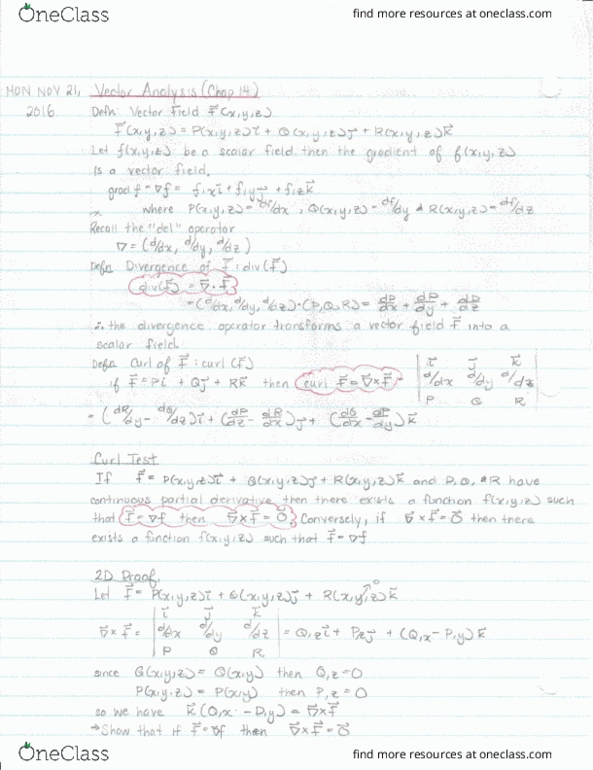 OneClass
find more resources at oneclass.com
MON NOV 21, Vector Analysis (Chap 14)
2016 Defn: Vector Field F⃗(x,y,z)
F⃗(x,y,z) = P(x,y,z)i⃗ + Q(x,y,z)j⃗ + R(x,y,z)k⃗
Let f(x,y,z) be a scalar field then the gradient of f(x,y,z)
is a vector field,
grad f = ∇f = f,x i⃗ + f,y j⃗ + f,z k⃗
where P(x,y,z) = df/dx, Q(x,y,z) = df/dy & R(x,y,z) = df/dz
Recall the "del" operator
∇ = (d/dx, d/dy, d/dz)
Defn: Divergence of F⃗: div(F⃗)
div(F⃗) = ∇⃗·F⃗
= (d/dx, d/dy, d/dz)·(P,Q,R) = dP/dx + dP/dy + dP/dz
∴ the divergence operator transforms a vector field F⃗ into a
scalar field.
Defn: Curl of F⃗: curl (F⃗)
if F⃗ = Pi⃗ + Qj⃗ + Rk⃗ then curl F⃗ = ∇⃗×F⃗ = | i⃗ j⃗ k⃗ |
| d/dx d/dy d/dz |
| P Q R |
= (dR/dy - dQ/dz)i⃗ + (dP/dz - dR/dx)j⃗ + (dQ/dx - dP/dy)k⃗
Curl Test
If F⃗ = P(x,y,z)i⃗ + Q(x,y,z)j⃗ + R(x,y,z)k⃗ and P, Q, & R have
continuous partial derivative, then there exists a function f(x,y,z) such
that F⃗ = ∇f then ∇⃗×F⃗ = 0⃗. Conversely, if ∇⃗×F⃗ = 0⃗ then there
exists a function f(x,y,z) such that F⃗ = ∇f
2D Proof.
Let F⃗ = P(x,y,z)i⃗ + Q(x,y,z)j⃗ + R(x,y,z)k⃗ 0
∇⃗×F⃗ = | i⃗ j⃗ k⃗ |
| d/dx d/dy d/dz | = Q,z i⃗ + P,z j⃗ + (Q,x - P,y)k⃗
| P Q R |
since Q(x,y,z) = Q(x,y) then Q,z = 0
P(x,y,z) = P(x,y) then P,z = 0
so we have k⃗(Q,x - P,y) = ∇⃗×F⃗
→ Show that if F⃗ = ∇f then ∇⃗×F⃗ = 0⃗
OneClass
find more resources at oneclass.com